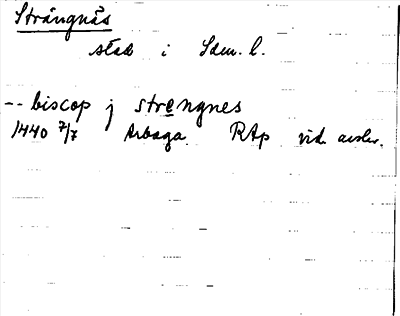 Strängnäs
stad i Sdm. l.
-- biscop j strengnes
1440 7/7 Arboga RAp vid. avskr.